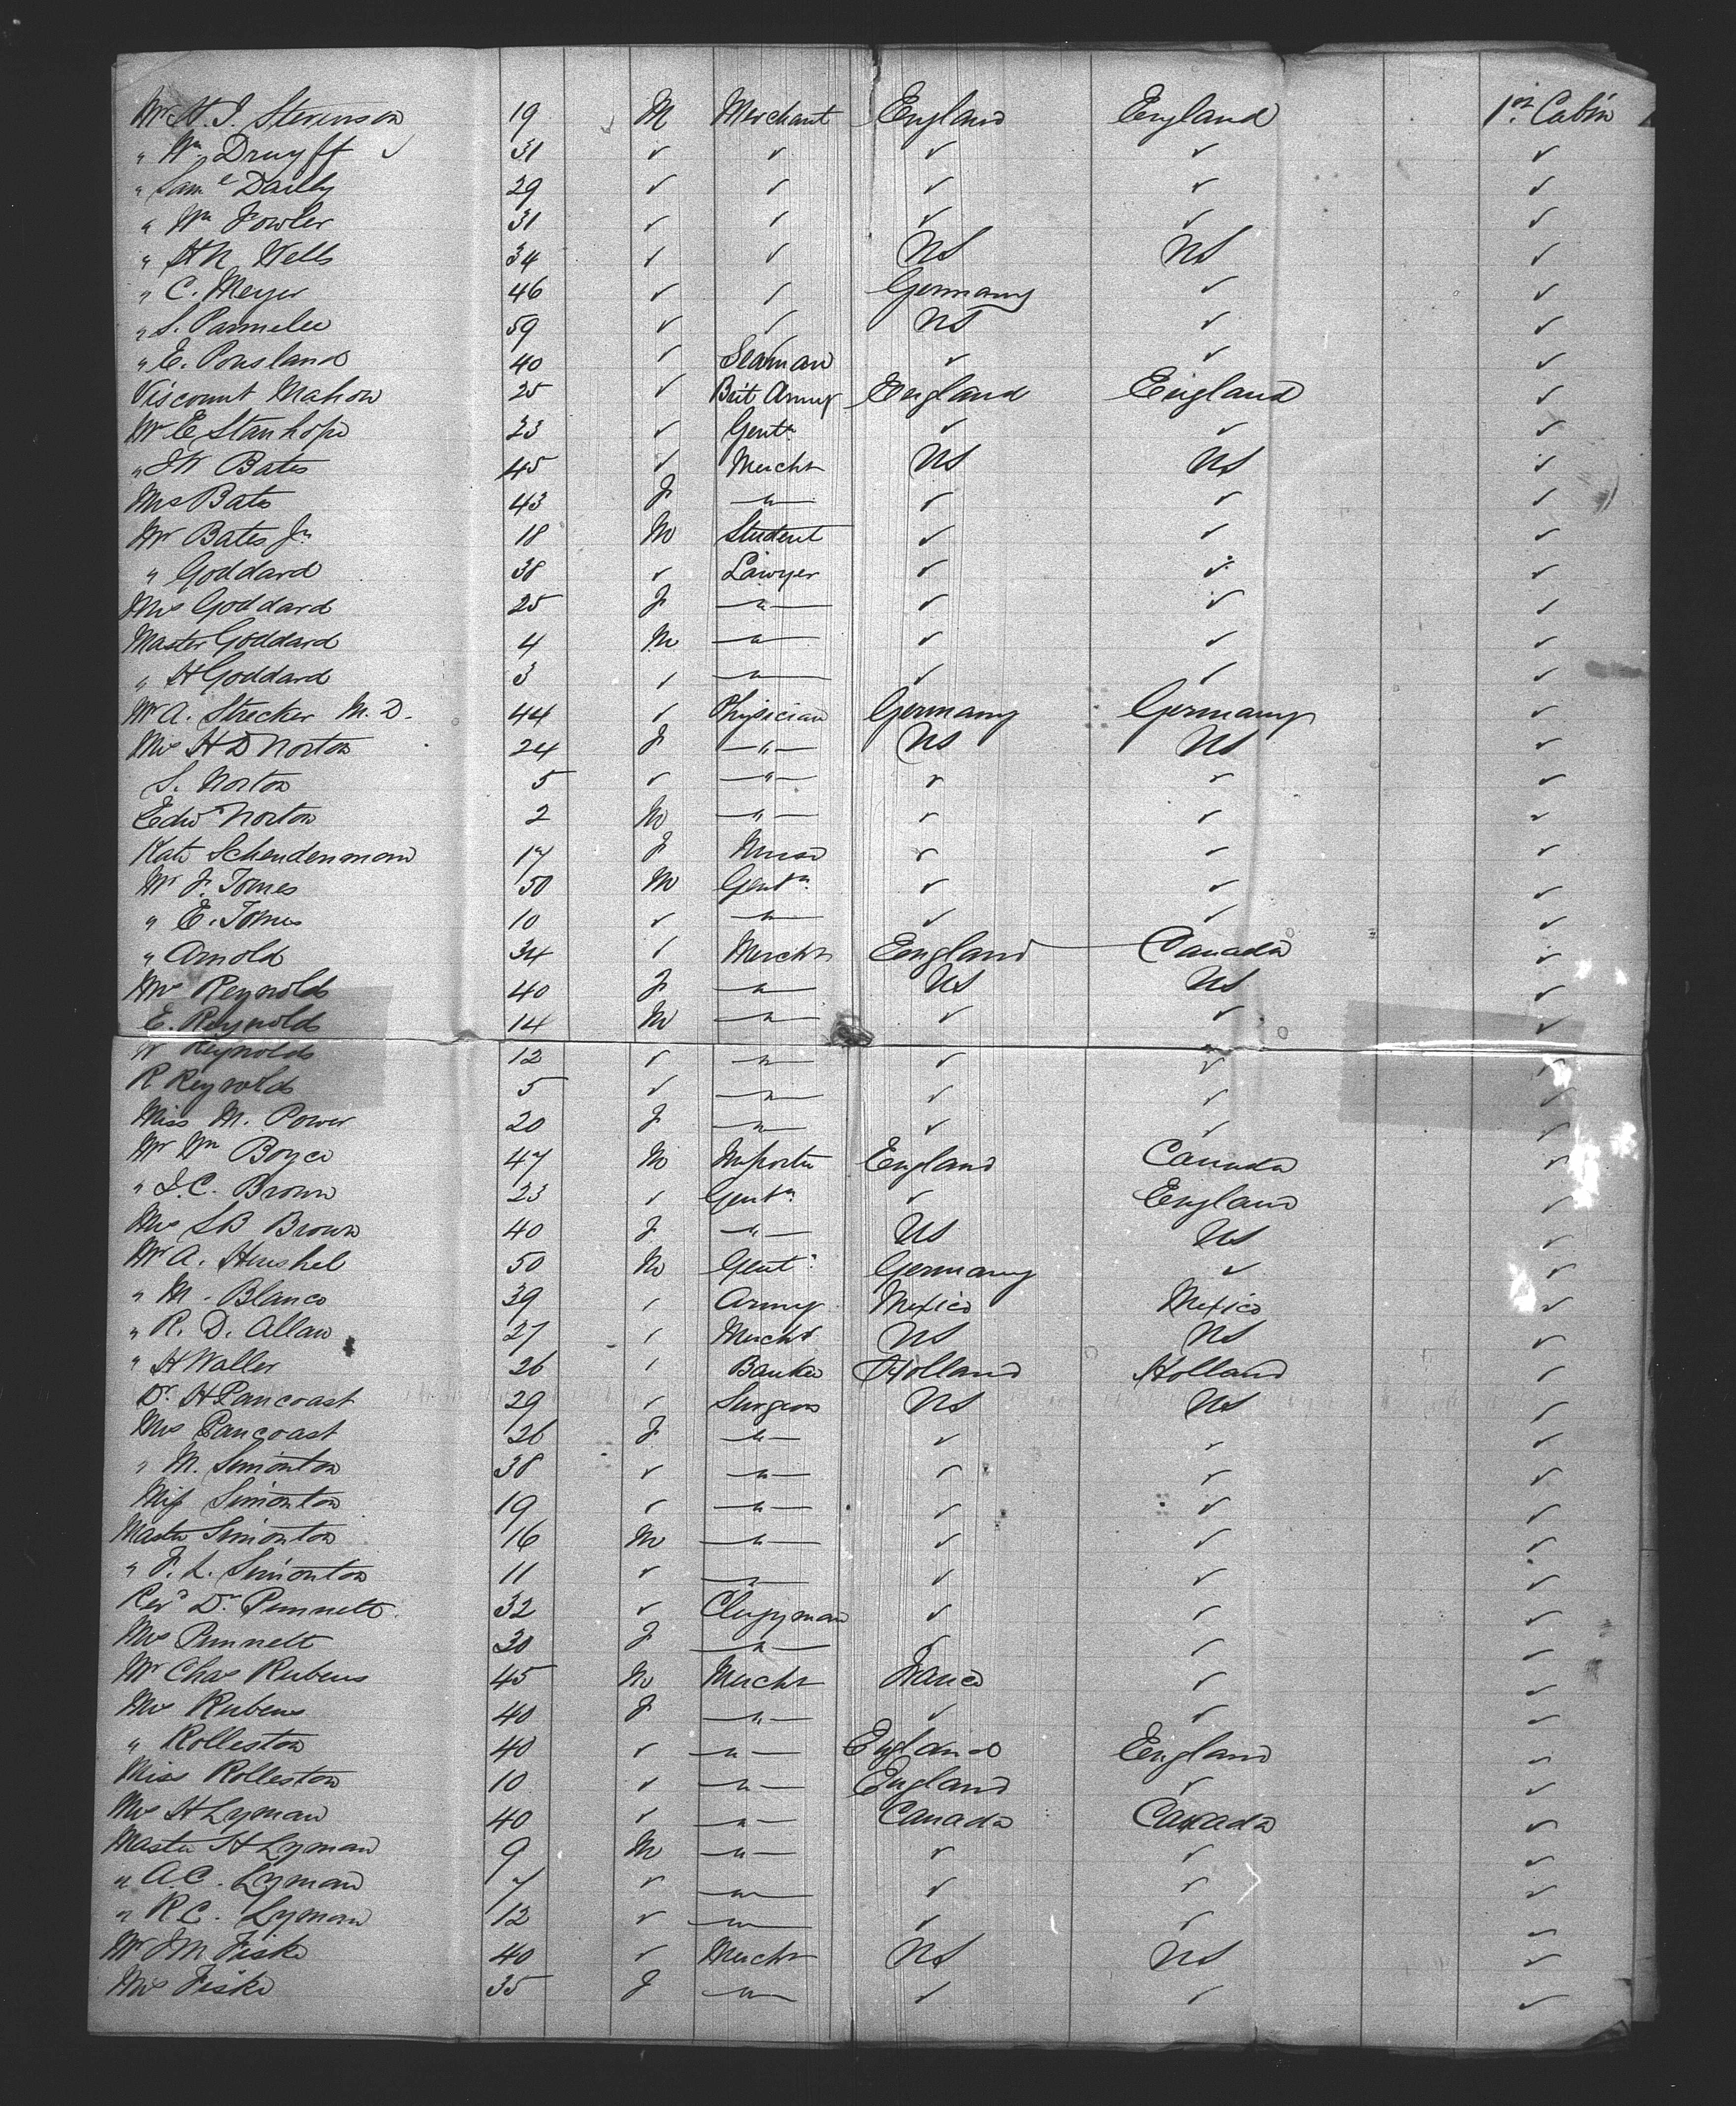 Mr H. J. Stevenson 19 M Merchant England England 1st Cabin
" Wm Druyff ✓ 31 ✓ ✓ ✓ ✓ ✓
" Saml Dailly 29 ✓ ✓ ✓ ✓ ✓
" Wm Fowler 31 ✓ ✓ ✓ ✓ ✓
" H N Wells 34 ✓ ✓ US US ✓
" C. Meyer 46 ✓ ✓ Germany ✓ ✓
" S. Parmelee 59 ✓ ✓ US ✓ ✓
" E. Pousland 40 ✓ Seaman ✓ ✓ ✓
Viscount Mahon 25 ✓ Brit Army England England ✓
Mr E Stanhope 23 ✓ Gentn ✓ ✓ ✓
" J W Bates 45 ✓ Mercht US US ✓
Mrs Bates 43 F — " — ✓ ✓ ✓
Mr Bates Jr 18 M Student ✓ ✓ ✓
" Goddard 38 ✓ Lawyer ✓ ✓ ✓
Mrs Goddard 25 F — " — ✓ ✓ ✓
Master Goddard 4 M — " — ✓ ✓ ✓
" H Goddard 3 ✓ — " — ✓ ✓ ✓
Mr A. Strecker M. D. 44 ✓ Physician Germany Germany ✓
Mrs H D Norton 24 F — " — US US ✓
S. Norton 5 ✓ — " — ✓ ✓ ✓
Edwd Norton 2 M — " — ✓ ✓ ✓
Kate Scheudenmann 17 F Nurse ✓ ✓ ✓
Mr F. Tomes 50 M Gentn ✓ ✓ ✓
" E. Tomes 10 ✓ — " — ✓ ✓ ✓
" Arnold 34 ✓ Mercht England Canada ✓
Mrs Reynolds 40 F — " — US US ✓
E. Reynolds 14 M — " — ✓ ✓ ✓
W Reynolds 12 ✓ — " — ✓ ✓ ✓
R Reynolds 5 ✓ — " — ✓ ✓ ✓
Miss M. Power 20 F — " — ✓ ✓ ✓
Mr Wm Boyce 47 M Importer England Canada ✓
" J. C. Brown 23 ✓ Gentn ✓ England ✓
Mrs S B Brown 40 F — " — US US ✓
Mr A. Henshel 50 M Gentn Germany ✓ ✓
" M. Blanco 39 ✓ Army Mexico Mexico ✓
" R. D. Allan 27 ✓ Mercht US US ✓
" H Waller 26 ✓ Banker Holland Holland ✓
Dr. H Pancoast 29 ✓ Surgeon US US ✓
Mrs Pancoast 26 F — " — ✓ ✓ ✓
" M. Simonton 38 ✓ — " — ✓ ✓ ✓
Miss Simonton 19 ✓ — " — ✓ ✓ ✓
Master Simonton 16 M — " — ✓ ✓ ✓
" F. L. Simonton 11 ✓ — " — ✓ ✓ ✓
Revd Dr. Punnett 32 ✓ Clergyman ✓ ✓ ✓
Mrs Punnett 30 F — " — ✓ ✓ ✓
Mr Chas Rubens 45 M Mercht France ✓ ✓
Mrs Rubens 40 F — " — ✓ ✓ ✓
" Rolleston 40 ✓ — " — England England ✓
Miss Rolleston 10 ✓ — " — England ✓ ✓
Mrs H Lyman 40 ✓ — " — Canada Canada ✓
Master H Lyman 9 M — " — ✓ ✓ ✓
" A. C. Lyman 7 ✓ — " — ✓ ✓ ✓
" R. C. Lyman 12 ✓ — " — ✓ ✓ ✓
Mr J M Fiske 40 ✓ Mercht US US ✓
Mrs Fiske 35 F — " — ✓ ✓ ✓